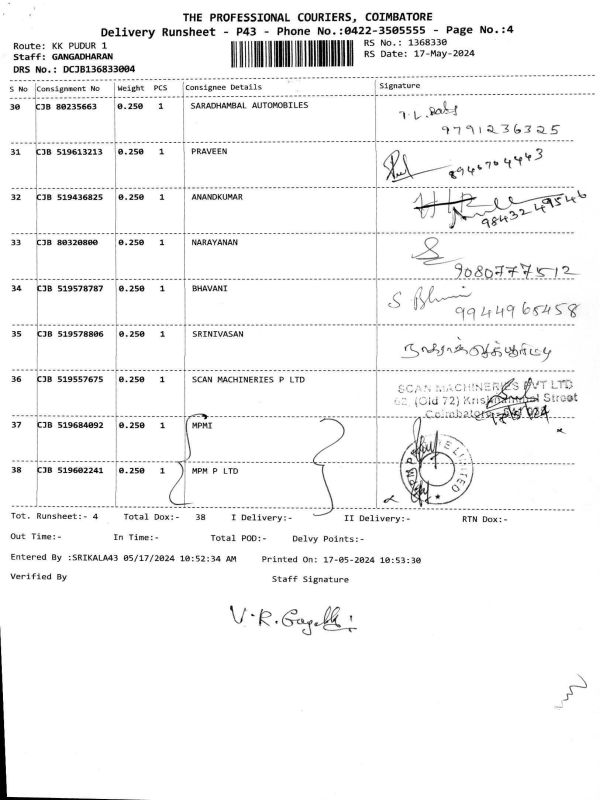 THE PROFESSIONAL COURIERS, COIMBATORE
Delivery Runsheet - P43 - Phone No.:0422-3505555 - Page No.:4
Route: KK PUDUR 1
RS No.: 1368330
Staff: GANGADHARAN
RS Date: 17-May-2024
DRS No.: DCJB136833004
S No Consignment No Weight PCS Consignee Details Signature
30 CJB 80235663 0.250 1 SARADHAMBAL AUTOMOBILES
9791236325
31 CJB 519613213 0.250 1 PRAVEEN
8946704443
32 CJB 519436825 0.250 1 ANANDKUMAR
9843249546
33 CJB 80320800 0.250 1 NARAYANAN
9080777512
34 CJB 519578787 0.250 1 BHAVANI
9944965458
35 CJB 519578806 0.250 1 SRINIVASAN
36 CJB 519557675 0.250 1 SCAN MACHINERIES P LTD
SCAN MACHINERIES PVT LTD
62, (Old 72) Street
37 CJB 519684092 0.250 1 MPMI
38 CJB 519602241 0.250 1 MPM P LTD
Tot. Runsheet:- 4 Total Dox:- 38 I Delivery:- II Delivery:- RTN Dox:-
Out Time:- In Time:- Total POD:- Delvy Points:-
Entered By :SRIKALA43 05/17/2024 10:52:34 AM Printed On: 17-05-2024 10:53:30
Verified By Staff Signature